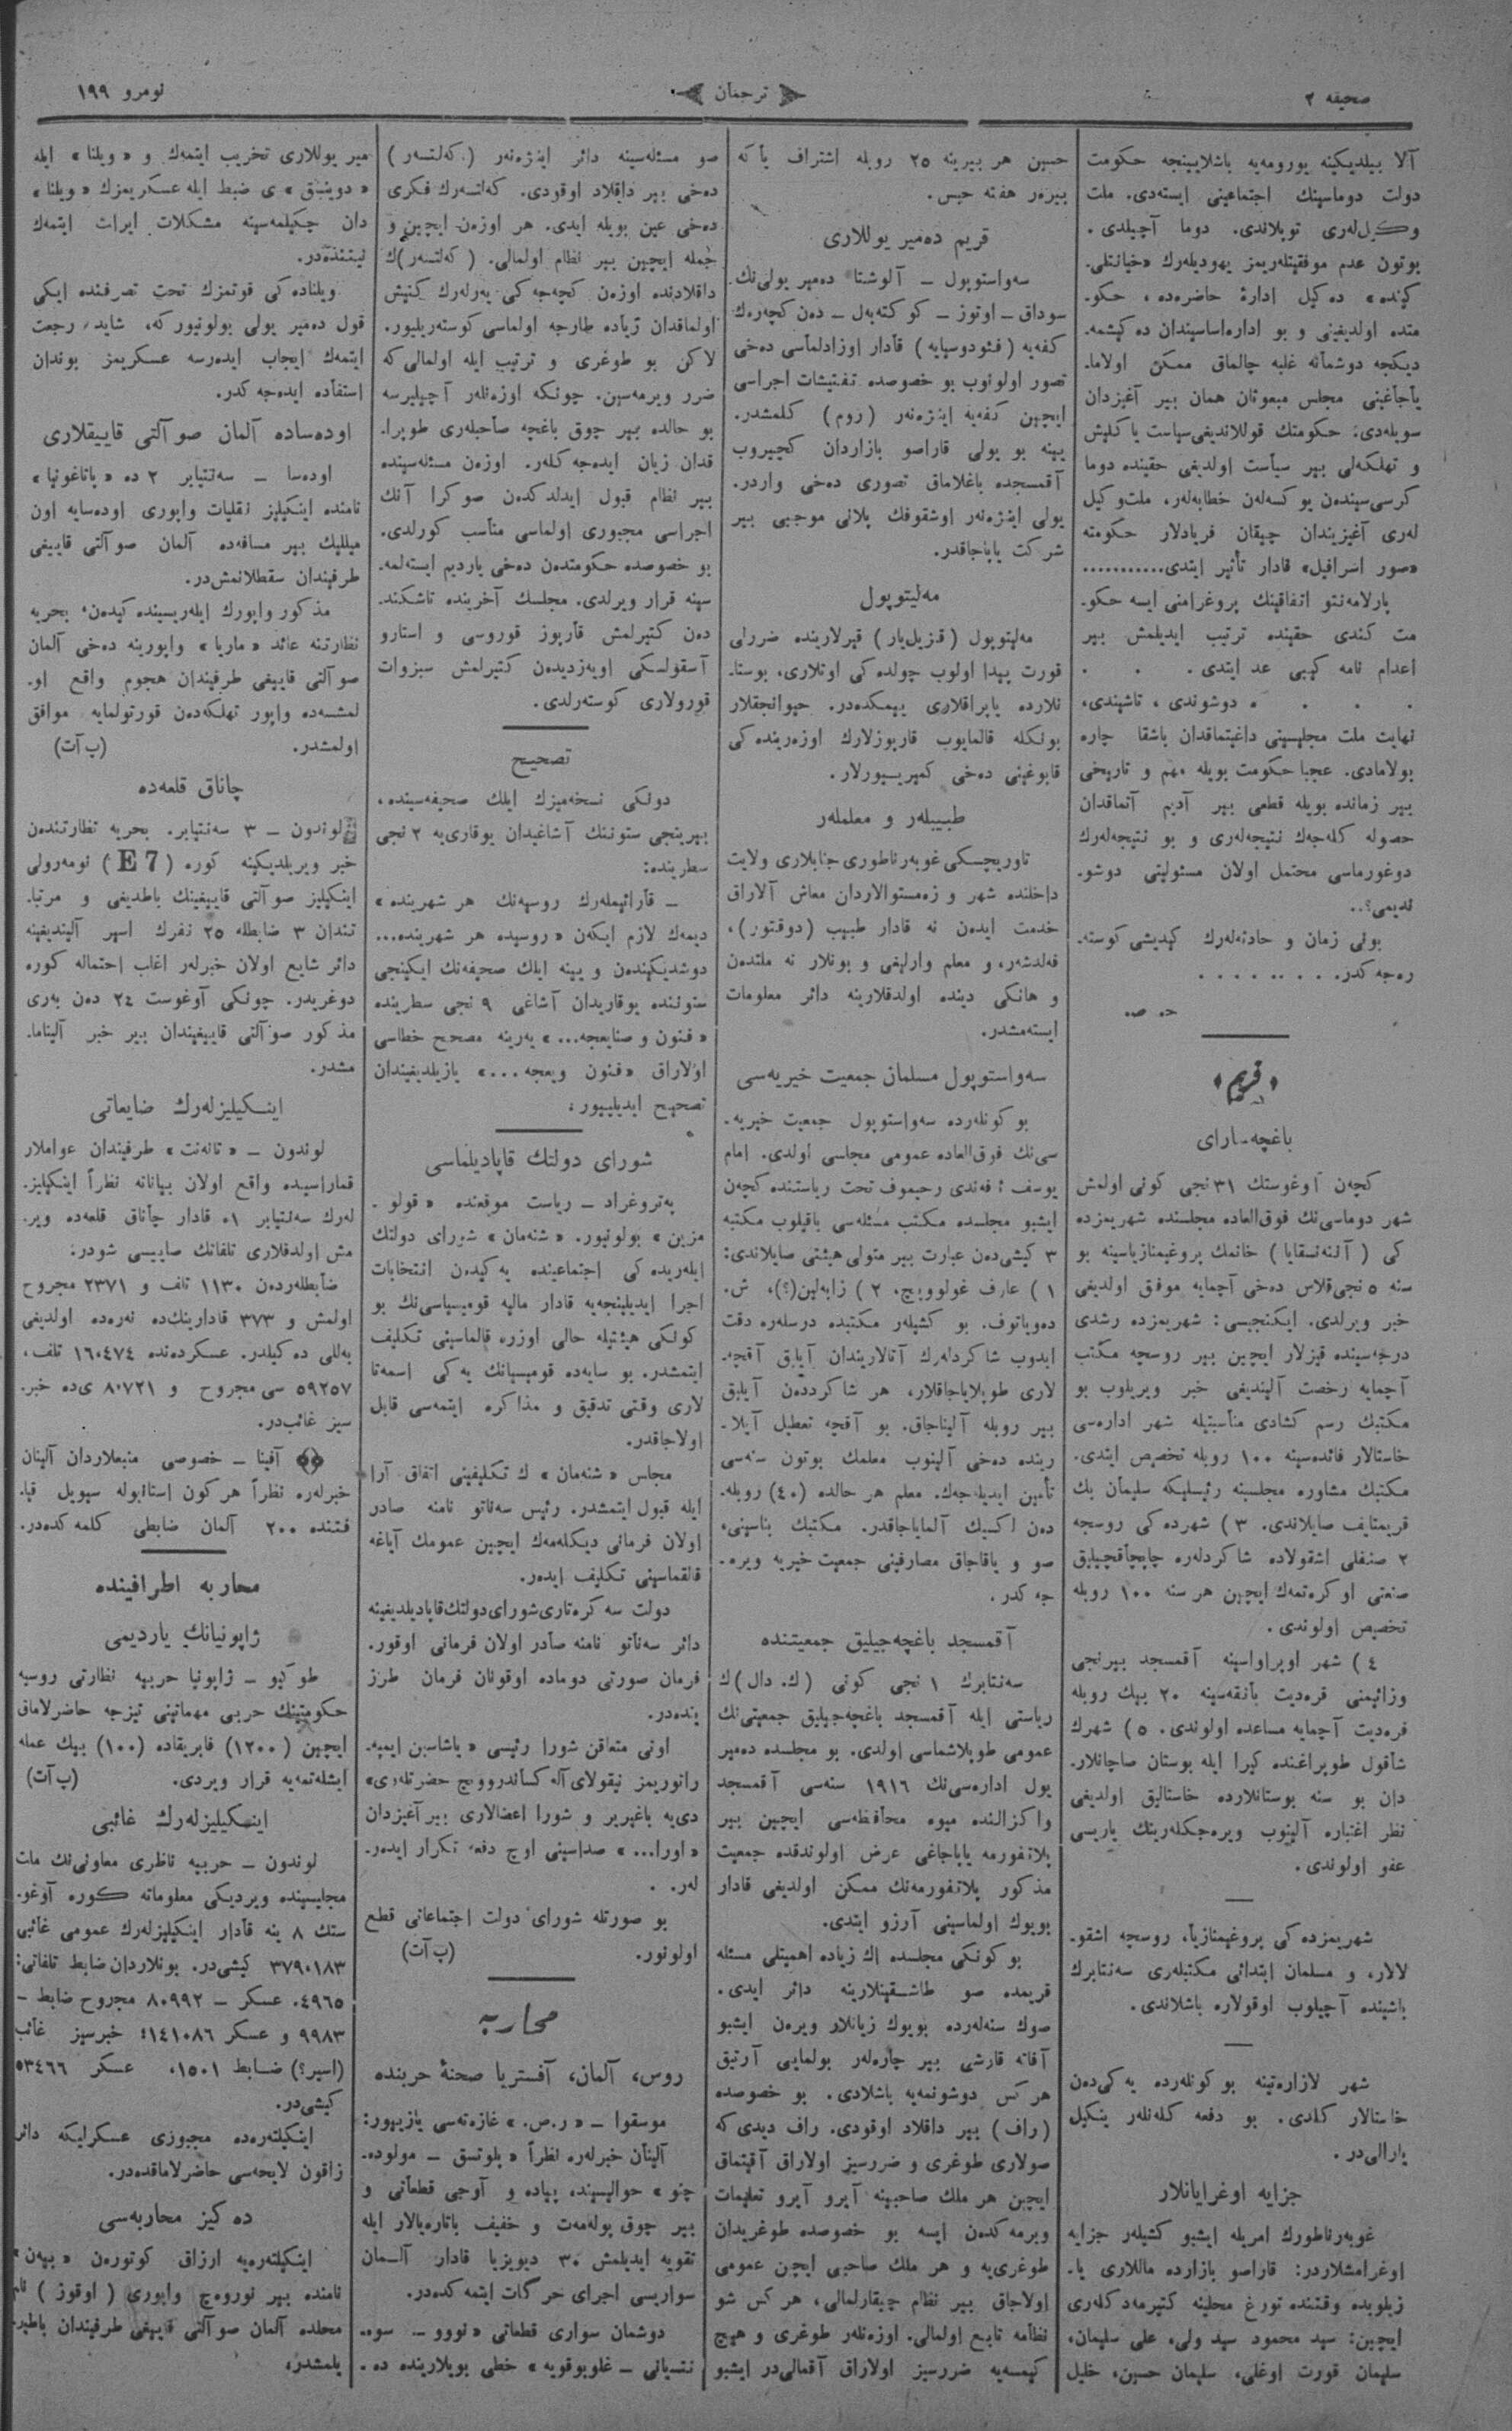 صحیفه ۲
ترجمان
نومرو ۱۹۹
آلا بیلدیکینه یورومه‌یه باشلایینجه حکومت
دولت دوماسینك اجتماعینی ایسته‌دی. ملت
وکیل‌لەری توپلاندی. دوما آچیلدی.
بوتون عدم موفقیتلەریمز یهودیلەرك «خیانتلی.
کینده» ده‌کیل ادارهٔ حاضره‌ده، حکو.
متده اولدیغینی و بو اداره‌اساسیندان ده‌کیشمه.
دیکجه دوشمانه غلبه چالماق ممکن اولاما.
یاجاغینی مجلس مبعوثان همان بیر آغیزدان
سویله‌دی: حکومتك قوللاندیغی سیاست یا کلیش
و تهلکه‌لی بیر سیاست اولدیغی حقینده دوما
کرسی‌سیندن یوکسه‌لەن خطابه‌لەر، ملت‌وکیل
لەری آغیزیندان چیقان فریادلار حکومته
«صور اسرافیل» قادار تأثیر ایتدی...........
پارلامەنتو اتفاقینك پروغرامنی ایسه حکو.
مت کندی حقینده ترتیب ایدیلمش بیر
اعدام نامه کیبی عد ایتدی . . .
. . . . دوشوندی، تاشیندی،
نهایت ملت مجلیسینی داغیتماقدان باشقا چاره
بولامادی. عجبا حکومت بویله مهم و تاریخی
بیر زمانده بویله قطعی بیر آدیم آتماقدان
حصوله کله‌جه‌ك نتیجه‌لەری و بو نتیجه‌لەرك
دوغورماسی محتمل اولان مسئولیتی دوشو.
ندیمی؟..
بونی زمان و حادثه‌لەرك کیدیشی کوسته.
ره‌جه کدر. . . . . . . . .
ح. ص.
«قریم»
باغچه‌سارای
کچه‌ن آوغوستك ۳۱ نجی کونی اولمش
شهر دوماسی‌نك فوق‌العاده مجلسنده شهریمزده
کی (آننه‌نسقایا) خانمك پروغیمنازیاسینه بو
سنه ۵ نجی‌قلاس ده‌خی آچمایه موفق اولدیغی
خبر ویرلدی. ایکنجیسی: شهریمزده رشدی
درجه‌سینده قیزلار ایچین بیر روسچه مکتب
آچمایه رخصت آلیندیغی خبر ویریلوب بو
مکتبك رسم کشادی مناسبتیله شهر اداره‌سی
خاستالار فائده‌سینه ۱۰۰ روبله تخصیص ایتدی.
مکتبك مشاوره مجلسینه رئیسلیکه سلیمان بك
قریمتایف صایلاندی. ۳) شهرده کی روسچه
۲ صنفلی اشقولاده شاکردلەره چاپچاقچیلیق
صنعتی اوکرەتمەك ایچین هر سنه ۱۰۰ روبله
تخصیص اولوندی.
٤) شهر اوپراواسینه آقمسجد بیرنجی
وزائیمنی قره‌دیت بانقه‌سینه ۲۰ بیك روبله
قره‌دیت آچمایه مساعده اولوندی. ٥) شهرك
شاقول طوپراغنده کیرا ایله بوستان صاچانلار.
دان بو سنه بوستانلارده خاستالیق اولدیغی
نظر اعتباره آلینوب ویره‌جکلەرینك یاریسی
عفو اولوندی.
شهریمزده کی پروغیمنازیا، روسچه اشقو.
لالار، و مسلمان ابتدائی مکتبلەری سه‌نتابرك
باشینده آچیلوب اوقولاره باشلاندی.
شهر لازارەتینه بو کونلەرده یه کی‌دەن
خاستالار کلدی. بو دفعه کلەنلەر ینکیل
یارالی‌در.
جزایه اوغرایانلار
غوبەرناطورك امریله ایشبو کشیلەر جزایه
اوغرامشلاردر: قاراصو بازارده ماللاری یا.
زیلوبده وقتنده تورغ محلینه کتیرمه‌دکلەری
ایچین: سید محمود سید ولی، علی سلیمان،
سلیمان قورت اوغلی، سلیمان حسین، خلیل
حسین هر بیرینه ۲۵ روبله اشتراف یا که
بیرەر هفته حبس.
قریم دەمیر یوللاری
سه‌واستوپول ـ آلوشتا دەمیر یولی‌نك
سوداق ـ اوتوز ـ کوکتەبەل ـ دەن کچەرەك
کفه‌یه (فئودوسیایه) قادار اوزادلماسی دەخی
تصور اولونوب بو خصوصده تفتیشات اجراسی
ایچین کفه‌یه اینژەنەر (روم) کلمشدر.
یینه بو یولی قاراصو بازاردان کچیروب
آقمسجده باغلاماق تصوری دەخی واردر.
یولی اینژەنەر اوشقوفك پلانی موجبی بیر
شرکت یاپاجاقدر.
مەلیتوپول
مەلیتوپول (قزیل‌یار) قیرلارینده ضررلی
قورت پیدا اولوب چولده کی اوتلاری، بوستا.
نلارده یاپراقلاری ییمکده‌در. حیوانجقلار
بونکله قالمایوب قارپوزلارك اوزەرینده کی
قابوغینی دەخی کمیریبورلار.
طبیبلەر و معلملەر
تاوریچسکی غوبەرناطوری جنابلاری ولایت
داخلنده شهر و زەمستوالاردان معاش آلاراق
خدمت ایدەن نه قادار طبیب (دوقتور)،
فەلدشەر، و معلم وارلیغی و بونلار نه ملتدەن
و هانکی دینده اولدقلارینه دائر معلومات
ایستەمشدر.
سه‌واستوپول مسلمان جمعیت خیریه‌سی
بو کونلەرده سه‌واستوپول جمعیت خیریه.
سی‌نك فوق‌العاده عمومی مجلسی اولدی. امام
یوسف افەندی رحیموف تحت ریاستنده کچەن
ایشبو مجلسده مکتب مسئله‌سی باقیلوب مکتبه
۳ کیشی‌دەن عبارت بیر متولی هیئتی صایلاندی:
۱) عارف غولوویچ، ۲) زابەلین(؟)، ش.
دەویاتوف. بو کشیلەر مکتبده درسلەره دقت
ایدوب شاکردلەرك آتالاریندان آیلیق آقچه.
لاری طوپلایاجاقلار، هر شاکرددەن آیلیق
بیر روبله آلیناجاق. بو آقچه تعطیل آیلا.
رینده دەخی آلینوب معلمك بوتون سنه‌سی
تأمین ایدیله‌جەك. معلم هر حالده (٤۰) روبله.
دەن اکسیك آلمایاجاقدر. مکتبك بناسینی،
صو و یاقاجاق مصارفینی جمعیت خیریه ویرە.
جه کدر.
آقمسجد باغچه‌جیلیق جمعیتنده
سه‌نتابرك ۱ نجی کونی (ك. دال)ك
ریاستی ایله آقمسجد باغچه‌جیلیق جمعیتی‌نك
عمومی طوپلاشماسی اولدی. بو مجلسده دەمیر
یول اداره‌سی‌نك ۱۹۱٦ سنه‌سی آقمسجد
واکزالنده میوه محافظه‌سی ایچین بیر
پلاتفورمه یاپاجاغی عرض اولوندقده جمعیت
مذکور پلاتفورمەنك ممکن اولدیغی قادار
بویوك اولماسینی آرزو ایتدی.
بو کونکی مجلسده اك زیاده اهمیتلی مسئله
قریمده صو طاشقینلارینه دائر ایدی.
صوك سنه‌لەرده بویوك زیانلار ویرەن ایشبو
آفاته قارشی بیر چاره‌لەر بولمایی آرتیق
هرکس دوشونمه‌یه باشلادی. بو خصوصده
(راف) بیر داقلاد اوقودی. راف دیدی که
صولاری طوغری و ضررسیز اولاراق آقیتماق
ایچین هر ملك صاحبینه آیرو آیرو تعلیمات
ویرمه کدەن ایسه بو خصوصده طوغریدان
طوغری‌یه و هر ملك صاحبی ایچن عمومی
اولاجاق بیر نظام چیقارلمالی، هرکس شو
نظامه تابع اولمالی. اوزەنلەر طوغری و هیچ
کیمسه‌یه ضررسیز اولاراق آقمالی‌در ایشبو
صو مسئله‌سینه دائر اینژەنەر (کەلتسەر)
دەخی بیر داقلاد اوقودی. کەلتسەرك فکری
دەخی عین بویله ایدی. هر اوزەن ایچین و
جمله ایچین بیر نظام اولمالی. (کەلتسەر)ك
داقلادنده اوزەن کچه‌جه کی یەرلەرك کنیش
اولماقدان زیاده طارجه اولماسی کوستەریلیور.
لاکن بو طوغری و ترتیب ایله اولمالی که
ضرر ویرمه‌سین. چونکه اوزەنلەر آچیلیرسه
بو حالده بیر چوق باغچه صاحبلەری طوپرا.
قدان زیان ایده‌جه کلەر. اوزەن مسئله‌سینده
بیر نظام قبول ایدلدکدەن صوکرا آنك
اجراسی مجبوری اولماسی مناسب کورلدی.
بو خصوصده حکومتدەن دەخی یاردیم ایستەلمه.
سینه قرار ویرلدی. مجلسك آخرینده تاشکند.
دەن کتیرلمش قارپوز قوروسی و استارو
آسقولسکی اویەزدیدەن کتیرلمش سبزوات
قورولاری کوستەرلدی.
تصحیح
دونکی نسخه‌میزك ایلك صحیفه‌سینده،
بیرینجی ستوننك آشاغیدان یوقاری‌یه ۲ نجی
سطرینده:
ـ قارائیملەرك روسیه‌نك هر شهرینده»
دیمەك لازم ایکەن «روسیده هر شهرینده...
دوشدیکیندەن و یینه ایلك صحیفه‌نك ایکینجی
ستوننده یوقاریدان آشاغی ۹ نجی سطرینده
«فنون و صنایعجه...» یەرینه مصحح خطاسی
اولاراق «فنون ویعجه...» یازیلدیغیندان
تصحیح ایدیلییور.
شورای دولتك قاپادیلماسی
پەتروغراد ـ ریاست موقعنده «قولو.
مزین» بولونیور. «شنه‌مان» شورای دولتك
ایلەریده کی اجتماعینده یه کیدەن انتخابات
اجرا ایدیلینجه‌یه قادار مالیه قومیسیاسی‌نك بو
کونکی هیئتیله حالی اوزره قالماسینی تکلیف
ایتمشدر. بو سایه‌ده قومیسیانك یه کی اسمه‌تا
لاری وقتی تدقیق و مذاکره ایتمه‌سی قابل
اولاجاقدر.
مجلس «شنه‌مان» ك تکلیفینی اتفاق آرا
ایله قبول ایتمشدر. رئیس سەناتو نامنه صادر
اولان فرمانی دیکله‌مەك ایچین عمومك آیاغه
قالقماسینی تکلیف ایدەر.
دولت سه کره‌تاری شورای دولتك قاپادیلدیغینه
دائر سەناتو نامنه صادر اولان فرمانی اوقور.
فرمان صورتی دوماده اوقونان فرمان طرز
ینده‌در.
اونی متعاقن شورا رئیسی «یاشاسین ایمپه.
راتوریمز نیقولای آله‌کساندروویچ حضرتلەری»
دی‌یه باغیریر و شورا اعضالاری بیر آغیزدان
«اورا...» صداسینی اوچ دفعه تکرار ایدەر.
لەر.
بو صورتله شورای دولت اجتماعاتی قطع
اولونور. (پ آت)
محاربه
روس، آلمان، آفستریا صحنهٔ حربنده
موسقوا ـ «ر.ص.» غازەتەسی یازیبور:
آلینان خبرلەره نظراً «بلوتسق ـ مولودە.
چنو» حوالیسینده پیاده و آوجی قطعاتی و
بیر چوق پولەمەت و خفیف باتارەیالار ایله
تقویه ایدیلمش ۳۰ دیویزیا قادار آلمان
سواریسی اجرای حرکات ایتمه کده‌در.
دوشمان سواری قطعاتی «نووو ـ سوە.
نتسیانی ـ غلوبوقویه» خطی بویلارینده ده.
میر یوللاری تخریب ایتمەك و «ویلنا» ایله
«دوینسق» ی ضبط ایله عسکریمزك «ویلنا»
دان چکیلمه‌سینه مشکلات ایراث ایتمەك
نیتنده‌در.
ویلناده کی قوتمزك تحت تصرفنده ایکی
قول دەمیر یولی بولونیور که، شاید رجعت
ایتمەك ایجاب ایدەرسه عسکریمز بوندان
استفاده ایده‌جه کدر.
اودەساده آلمان صو آلتی قاییقلاری
اودەسا ـ سه‌نتیابر ۲ ده «پاتاغونیا»
نامنده اینکیلیز نقلیات واپوری اودەسایه اون
میللیك بیر مسافه‌ده آلمان صو آلتی قاییغی
طرفیندان سقطلانمش‌در.
مذکور واپورك ایلەریسینده کیدەن، بحریه
نظارتنه عائد «ماریا» واپورینه دەخی آلمان
صو آلتی قاییغی طرفیندان هجوم واقع او.
لمشسه‌ده واپور تهلکه‌دەن قورتولمایه موافق
اولمشدر. (پ آت)
چاناق قلعه‌ده
لوندون ـ ۳ سه‌نتیابر. بحریه نظارتندەن
خبر ویریلدیکینه کوره (E 7) نومەرولی
اینکیلیز صو آلتی قاییغینك باطدیغی و مرتبا.
تندان ۳ ضابطله ۲۵ نفرك اسیر آلیندیغینه
دائر شایع اولان خبرلەر اغلب احتماله کوره
دوغریدر. چونکی آوغوست ۲٤ دەن بەری
مذکور صو آلتی قاییغیندان بیر خبر آلیناما.
مشدر.
اینکیلیزلەرك ضایعاتی
لوندون ـ «تانەنت» طرفیندان عواملار
قماراسیده واقع اولان بیاناته نظراً اینکیلیز.
لەرك سه‌نتیابر ۱ه قادار چاناق قلعه‌ده ویر.
مش اولدقلاری تلفاتك صاییسی شودر:
ضابطلەردەن ۱۱۳۰ تلف و ۲۳۷۱ مجروح
اولمش و ۳۷۳ قادارینك‌ده نەرەده اولدیغی
بەللی ده‌کیلدر. عسکردەنده ۱٦۰٤۷٤ تلف،
٥۹۲٥۷ سی مجروح و ۸۰۷۲۱ ی‌ده خبر.
سیز غائب‌در.
آفینا ـ خصوصی منبعلاردان آلینان
خبرلەره نظراً هر کون استانبوله سیویل قیا.
فتنده ۲۰۰ آلمان ضابطی کلمه کده‌در.
محاربه اطرافینده
ژاپونیانك یاردیمی
طوکیو ـ ژاپونیا حربیه نظارتی روسیه
حکومتینك حربی مهماتینی تیزجه حاضرلاماق
ایچین (۱۲۰۰) فابریقاده (۱۰۰) بیك عمله
ایشله‌تمه‌یه قرار ویردی. (پ آت)
اینکیلیزلەرك غائبی
لوندون ـ حربیه ناظری معاونی‌نك ملت
مجلیسینده ویردیکی معلوماته کوره آوغو.
ستك ۸ ینه قادار اینکیلیزلەرك عمومی غائبی
۳۷۹۰۱۸۳ کیشی‌در. بونلاردان ضابط تلفاتی:
٤۹٦٥. عسکر ـ ۸۰۹۹۲ مجروح ضابط ـ
۹۹۸۳ و عسکر ۱٤۱۰۸٦؛ خبرسیز غائب
(اسیر؟) ضابط ۱٥۰۱، عسکر ٥۳٤٦٦
کیشی‌در.
اینکیلتەرەده مجبوری عسکرلیکه دائر
زاقون لایحه‌سی حاضرلاماقده‌در.
ده‌کیز محاربه‌سی
اینکیلتەرەیه ارزاق کوتورەن «بیەن»
نامنده بیر نوروەچ واپوری (اوقوز) نام
محلده آلمان صو آلتی قاییغی طرفیندان باطیر.
یلمشدر.